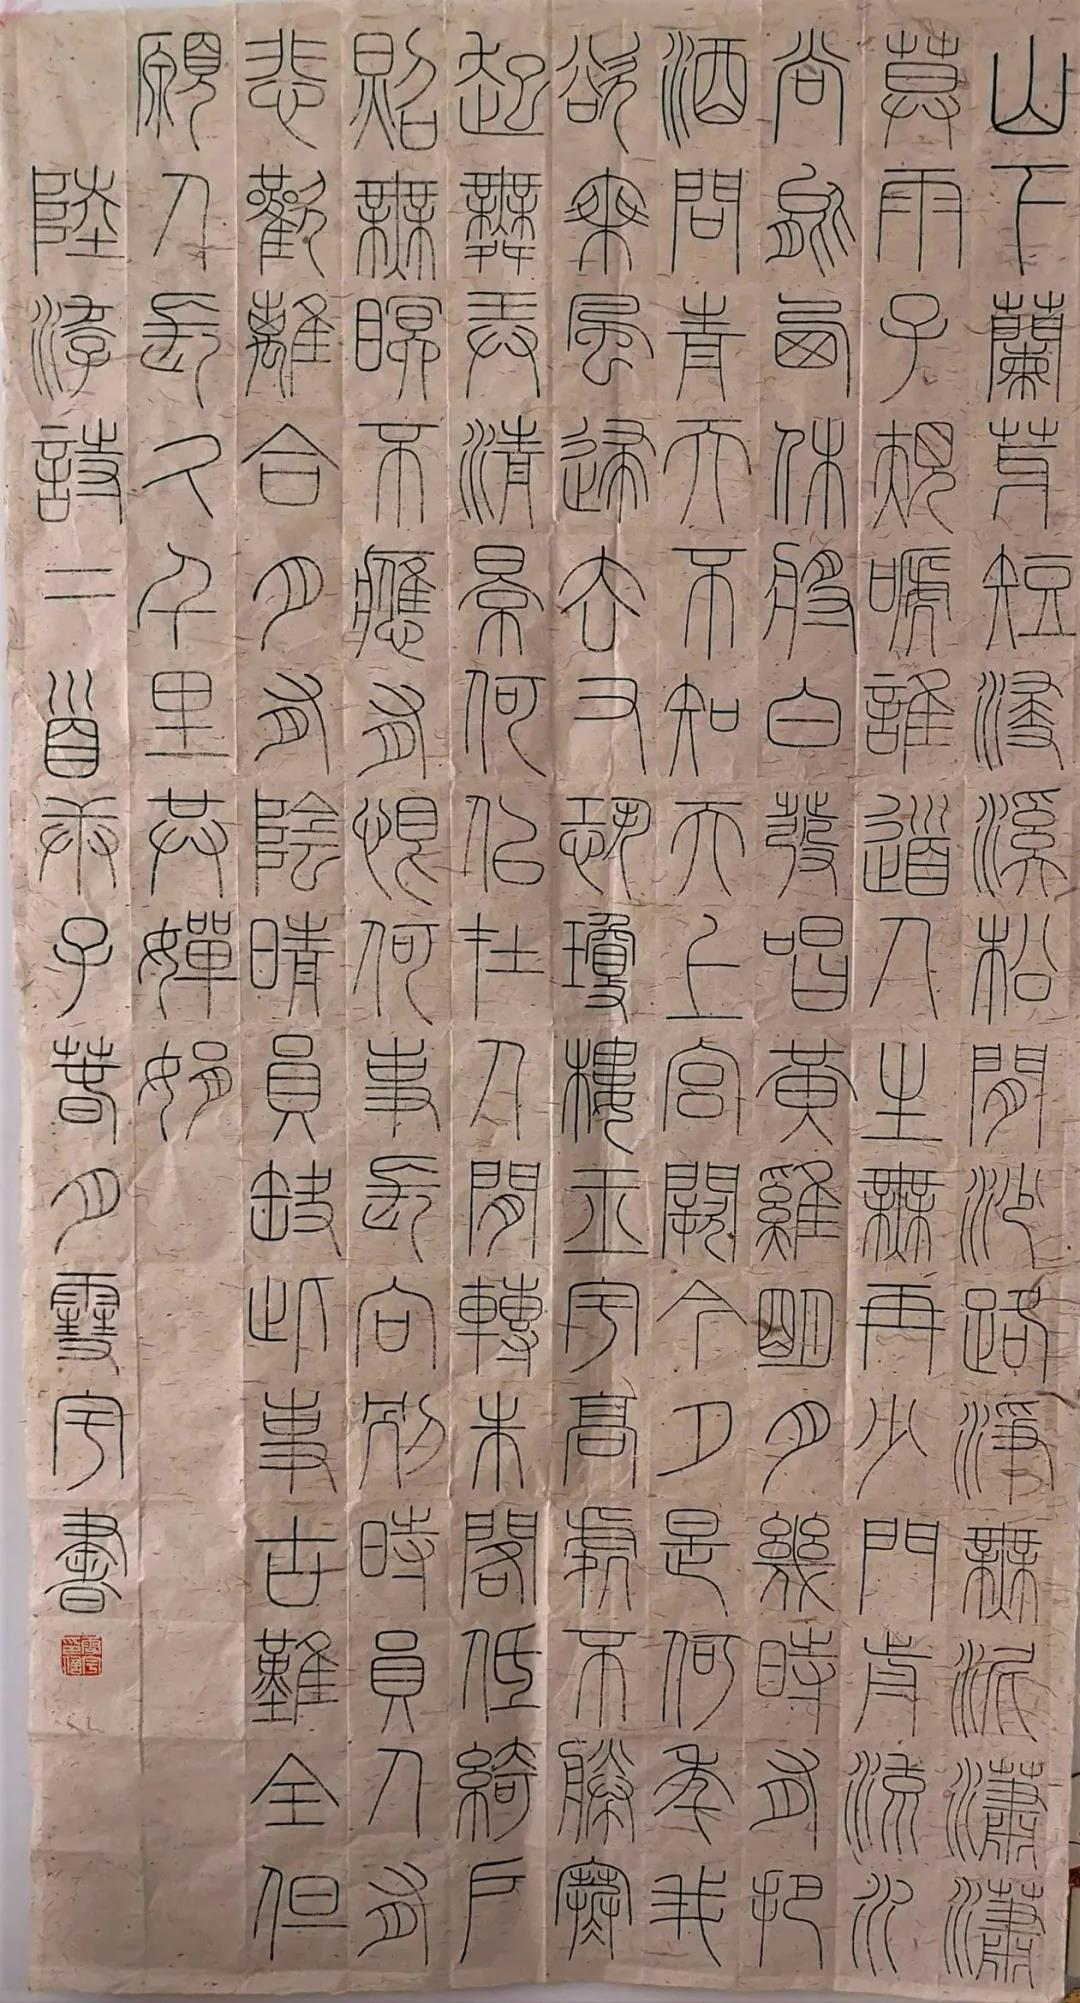 山下蘭芽短浸溪松閒沙路淨無泥瀟瀟
莫雨子規嗁誰道人生無再少門前流水
尚能西休將白髮唱黃雞明月幾時有把
酒問青天不知天上宮闕今夕是何年我
欲乘風歸去又恐瓊樓玉宇高處不勝寒
起舞弄清景何似在人閒轉朱閣低綺戶
照無瞑不應有恨何事長向別時員人有
悲歡離合月有陰晴員缺此事古難全但
願人長久千里共嬋娟
陸詩二首庚子春月雪宇書